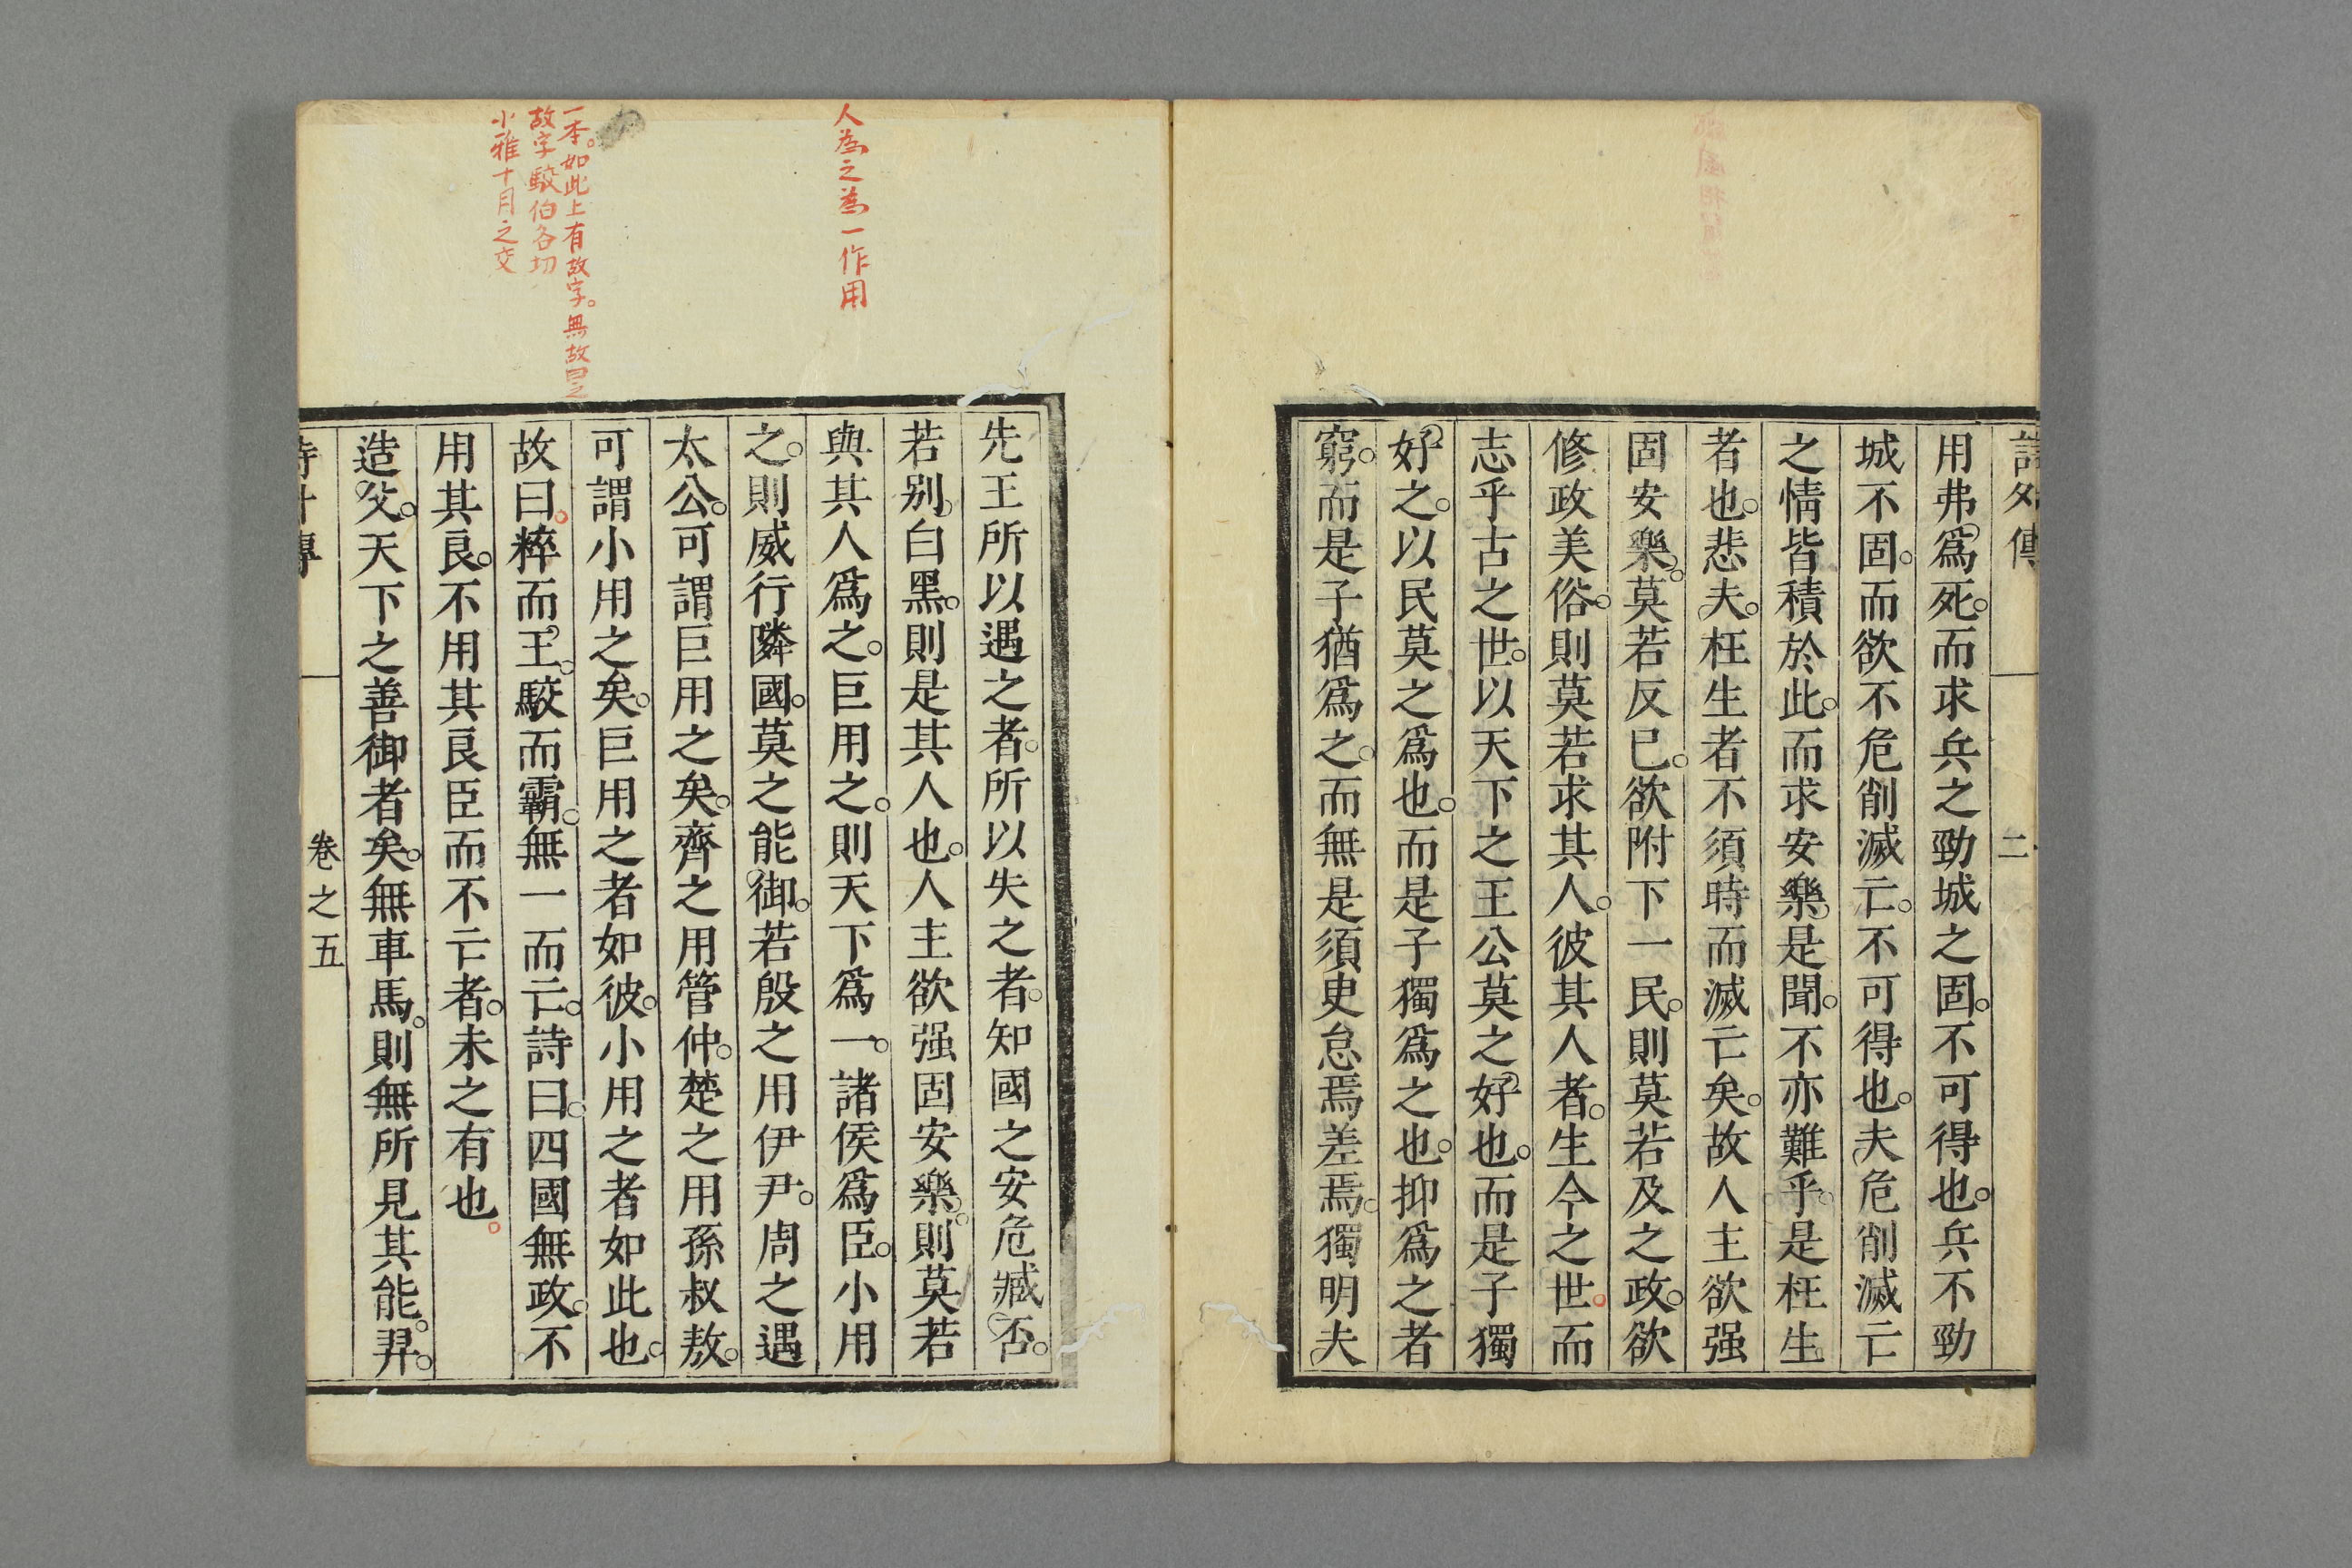 詩外傳 二
用弗爲死而求兵之勁城之固不可得也兵不勁
城不固而欲不危削滅亡不可得也夫危削滅亡
之情皆積於此而求安樂是聞不亦難乎是枉生
者也悲夫枉生者不須時而滅亡矣故人主欲强
固安樂莫若反已欲附下一民則莫若及之政欲
修政美俗則莫若求其人彼其人者生今之世而
志乎古之世以天下之王公莫之好也而是子獨
好之以民莫之爲也而是子獨爲之也抑爲之者
窮而是子猶爲之而無是須臾怠焉差焉獨明夫
先王所以遇之者所以失之者知國之安危臧否
若别白黑則是其人也人主欲强固安樂則莫若
與其人爲之巨用之則天下爲一諸侯爲臣小用
之則威行隣國莫之能御若殷之用伊尹周之遇
太公可謂巨用之矣齊之用管仲楚之用孫叔敖
可謂小用之矣巨用之者如彼小用之者如此也
故曰粹而王駮而霸無一而亡詩曰四國無政不
用其良不用其良臣而不亡者未之有也
造父天下之善御者矣無車馬則無所見其能羿
詩外傳 卷之五
人為之為一作用
一本。如此上有故字。無故曰之
故字駮伯各切
小雅十月之交